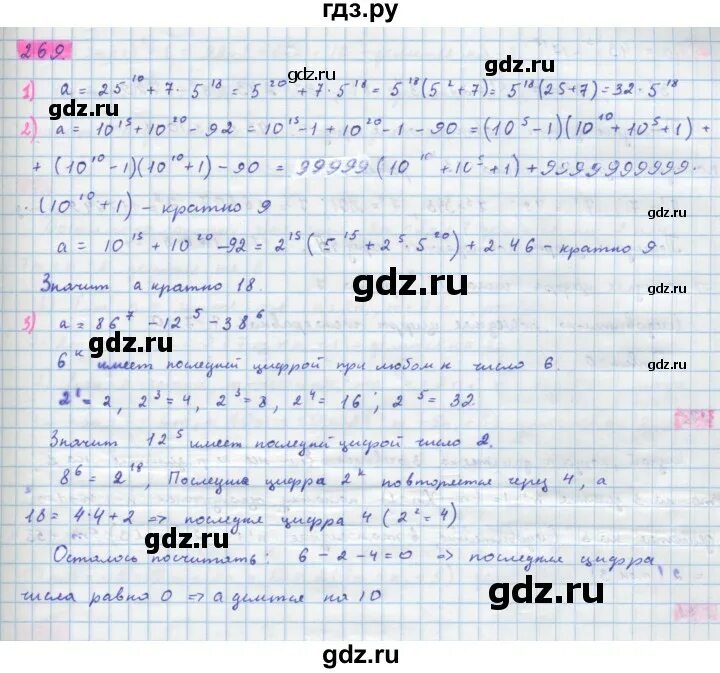 гдз.ру
269.
1) a = 25¹⁰ + 7 · 5¹⁸ = 5²⁰ + 7 · 5¹⁸ = 5¹⁸(5² + 7) = 5¹⁸(25 + 7) = 32 · 5¹⁸
gdz.ru
2) a = 10¹⁵ + 10²⁰ - 92 = 10¹⁵ - 1 + 10²⁰ - 1 - 90 = (10⁵ - 1)(10¹⁰ + 10⁵ + 1) +
gdz.ru
+ (10¹⁰ - 1)(10¹⁰ + 1) - 90 = 99999(10¹⁰ + 10⁵ + 1) + 9999999999·
· (10¹⁰ + 1) - кратно 9
gdz.ru
a = 10¹⁵ + 10²⁰ - 92 = 2¹⁵(5¹⁵ + 2⁵ · 5²⁰) + 2 · 46 - кратно 9
Значит a кратно 18.
gdz.ru
3) a = 86⁷ - 12⁵ - 38⁶
6ᵏ имеет последней цифрой при любом к число 6.
gdz.ru
2¹ = 2, 2³ = 4, 2³ = 8, 2⁴ = 16; 2⁵ = 32
Значит 12⁵ имеет последней цифрой число 2.
gdz.ru
8⁶ = 2¹⁸, Последняя цифра 2ᵏ повторяется через 4, а
18 = 4·4 + 2 => последняя цифра 4 (2² = 4)
gdz.ru
gdz.ru
Осталось посчитать: 6 - 2 - 4 = 0 => последняя цифра
числа равна 0 => a делится на 10
gdz.ru
gdz.ru